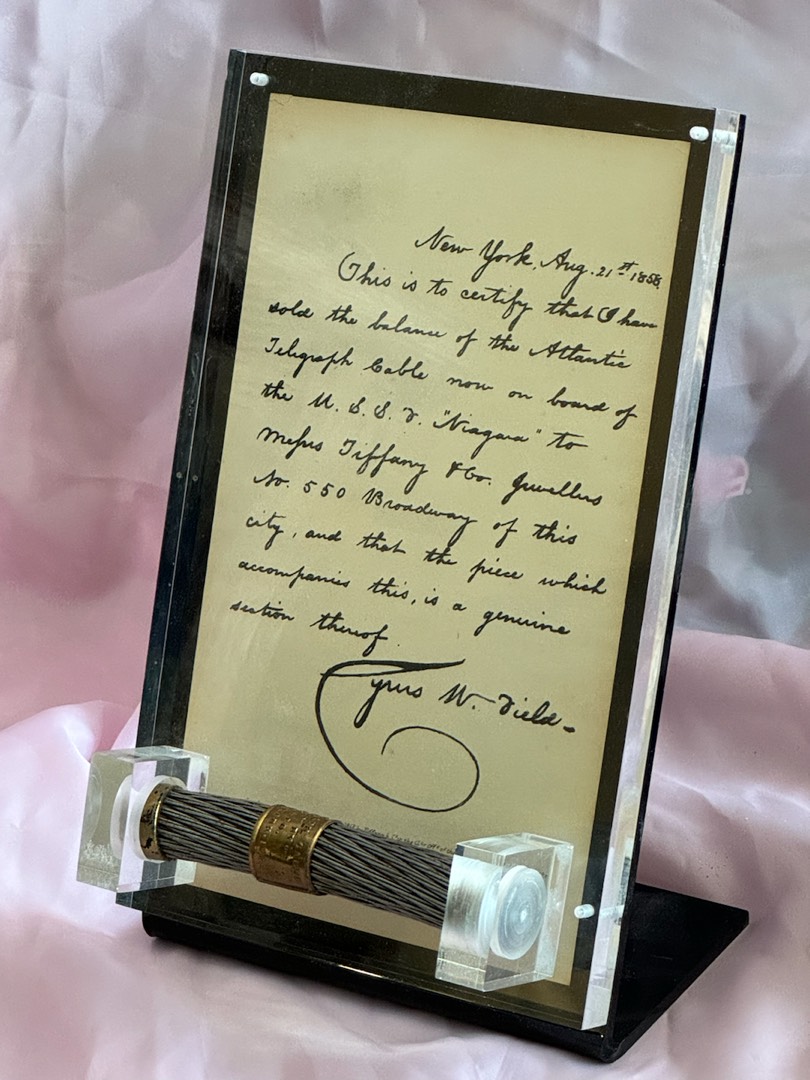 New York, Aug. 21st 1858.
This is to certify that I have
sold the balance of the Atlantic
Telegraph Cable now on board of
the U. S. S. F. "Niagara" to
Messrs Tiffany & Co. Jewellers
No. 550 Broadway of this
city, and that the piece which
accompanies this, is a genuine
section thereof.
Cyrus W. Field